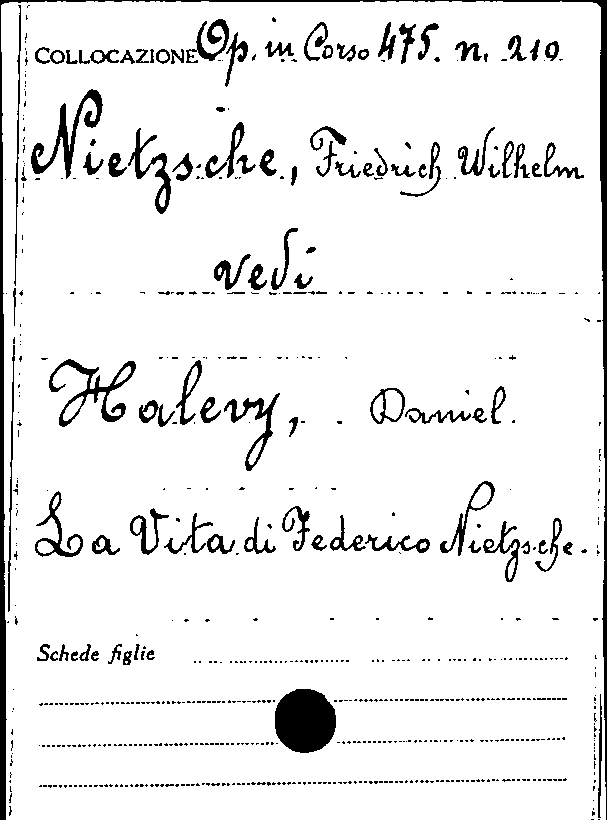 COLLOCAZIONE Op. in Corso 475. n. 210
Nietzsche, Friedrich Wilhelm
vedi
Halevy, Daniel.
La Vita di Federico Nietzsche.
Schede figlie